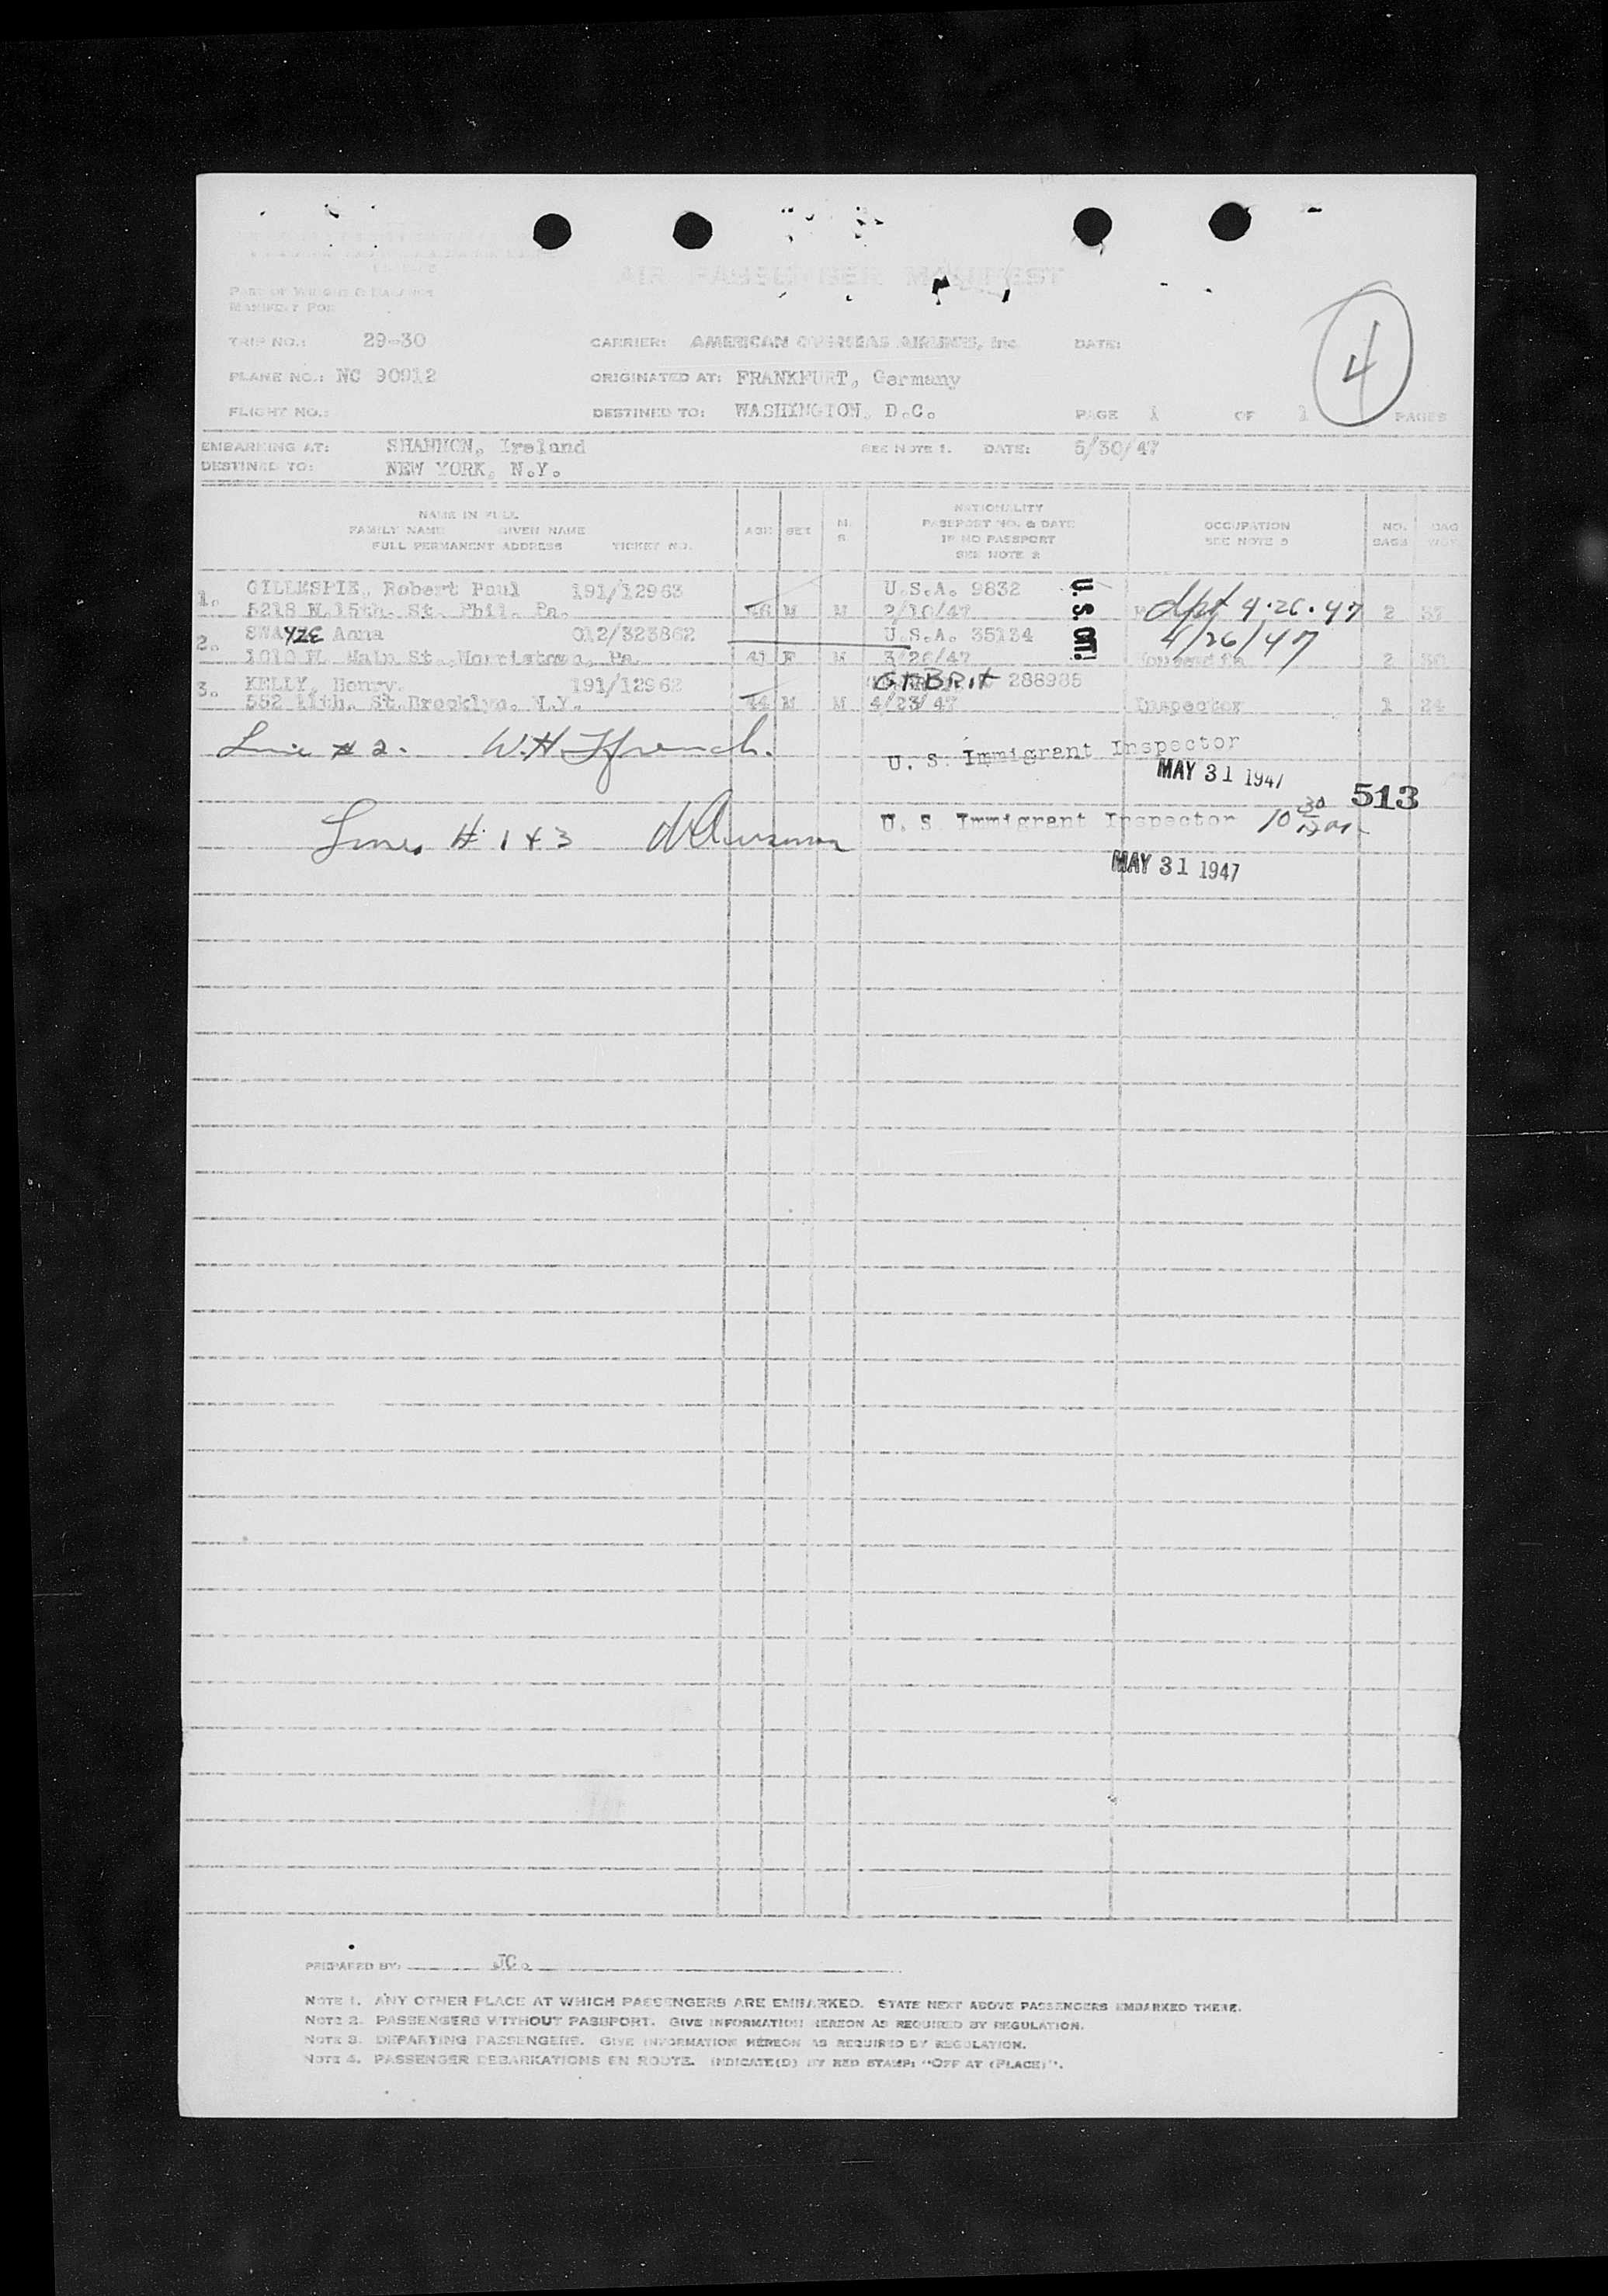 AIR PASSENGER MANIFEST
4
TRIP NO.: 29-30 CARRIER: AMERICAN OVERSEAS AIRLINES, Inc. DATE:
PLANE NO.: NC 90912 ORIGINATED AT: FRANKFURT, Germany
FLIGHT NO.: DESTINED TO: WASHINGTON, D.C. PAGE 1 OF 1 PAGES
EMBARKING AT: SHANNON, Ireland SEE NOTE 1. DATE: 5/30/47
DESTINED TO: NEW YORK, N.Y.
NAME IN FULL
FAMILY NAME GIVEN NAME
FULL PERMANENT ADDRESS TICKET NO.
AGE SEX M. S
NATIONALITY
PASSPORT NO. & DATE
IF NO PASSPORT
SEE NOTE 2
OCCUPATION
SEE NOTE 3
NO. BAGS
1. GILLESPIE, Robert Paul 191/12963 U.S.A. 9832 U.S. CIT.
5218 N.15th. St. Phil. Pa. 46 M M 2/10/47 dpt 4.26.47 2
2. SWAYZE Anna 012/323862 U.S.A. 35134 4/26/47
1010 N. Main St., Norristown, Pa. 41 F M 3/20/47 Housewife 2 30
3. KELLY, Henry. 191/12962 GT BRIT 288985
552 11th. St. Brooklyn. N.Y. 44 M M 4/23/47 Inspector 1 24
Line # 2. W.H. Ffrench. U. S. Immigrant Inspector
MAY 31 1947
513
Lines # 1 & 3 U. S. Immigrant Inspector 10 30
MAY 31 1947
PREPARED BY: JC.
NOTE 1. ANY OTHER PLACE AT WHICH PASSENGERS ARE EMBARKED. STATE NEXT ABOVE PASSENGERS EMBARKED THERE.
NOTE 2. PASSENGERS WITHOUT PASSPORT. GIVE INFORMATION HEREON AS REQUIRED BY REGULATION.
NOTE 3. DEPARTING PASSENGERS. GIVE INFORMATION HEREON AS REQUIRED BY REGULATION.
NOTE 4. PASSENGER DEBARKATIONS EN ROUTE. INDICATE(D) BY RED STAMP: "OFF AT (PLACE)".